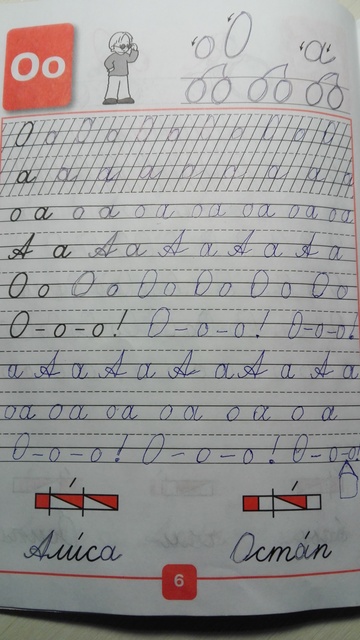 Оо
о О а
О о О о О о О о О о О
а а а а а а а а а
о а о а о а о а о а о а о а
А а А а А а А а А а
О о О о О о О о О о О о
О-о-о! О-о-о! О-о-о!
а А а А а А а А а А а
оа оа оа оа о а о а
О-о-о! О-о-о! О-о-о!
Али́са Оста́п
6